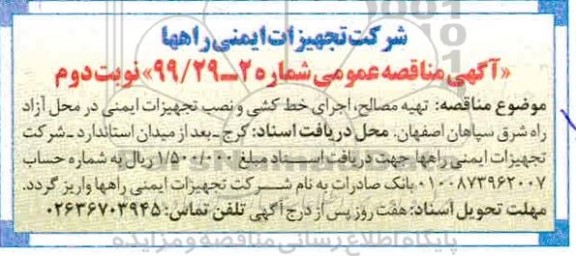 شرکت تجهیزات ایمنی راهها
«آگهی مناقصه عمومی شماره ۲-۹۹/۲۹» نوبت دوم
موضوع مناقصه: تهیه مصالح، اجرای خط کشی و نصب تجهیزات ایمنی در محل آزاد
راه شرق سپاهان اصفهان. محل دریافت اسناد: کرج - بعد از میدان استاندارد - شرکت
تجهیزات ایمنی راهها جهت دریافت اسناد مبلغ ۱/۵۰۰/۰۰۰ ریال به شماره حساب
۰۱۰۰۸۷۳۹۶۲۰۰۷ بانک صادرات به نام شرکت تجهیزات ایمنی راهها واریز گردد.
مهلت تحویل اسناد: هفت روز پس از درج آگهی تلفن تماس: ۰۲۶۳۶۷۰۳۹۴۵
پایگاه اطلاع رسانی مناقصه و مزایده